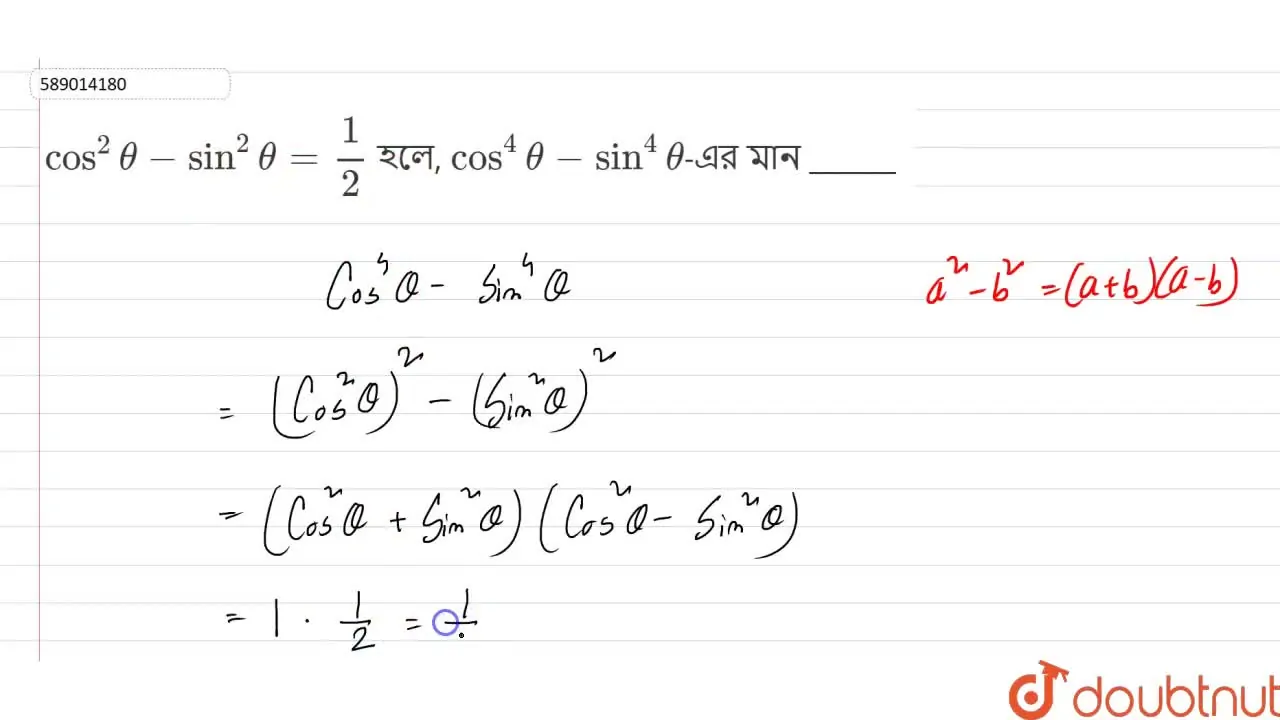 589014180
cos² θ − sin² θ = 1/2 হলে, cos⁴ θ − sin⁴ θ-এর মান ______
Cos⁴ θ − Sin⁴ θ
a² − b² = (a+b)(a−b)
= (Cos² θ)² − (Sin² θ)²
= (Cos² θ + Sin² θ) (Cos² θ − Sin² θ)
= 1 · 1/2 = 1/
doubtnut